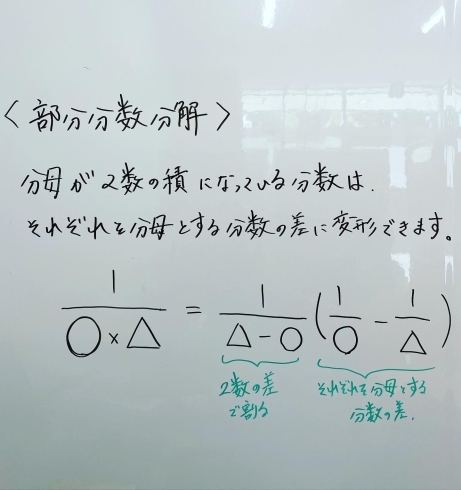 〈部分分数分解〉
分母が2数の積になっている分数は.
それぞれを分母とする分数の差に変形できます。
1/(○×△) = 1/(△-○) (1/○ - 1/△)
2数の差
で割る
それぞれを分母とする
分数の差.